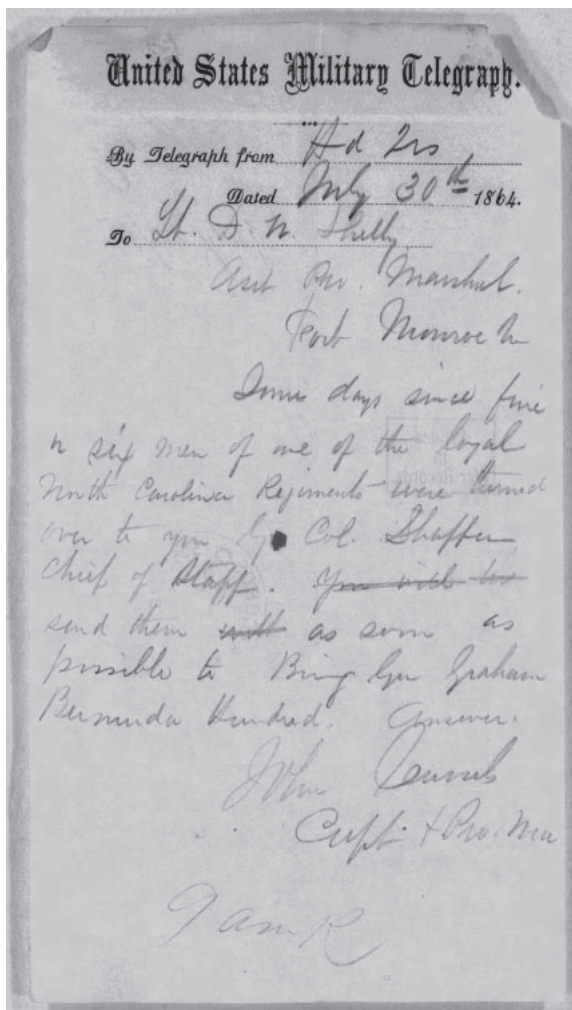 United States Military Telegraph.
By Telegraph from Hd Qrs
Dated July 30th 1864.
To Lt. D. N. Shelly
Asst Pro. Marshal.
Fort Monroe
Some days since five
or six men of one of the loyal
North Carolina Regiments were turned
over to you by Col. Shaffer
Chief of Staff. You will
send them as soon as
possible to Brig Gen Graham
Bermuda Hundred. Answer.
John Cassels
Capt & Pro. Mar